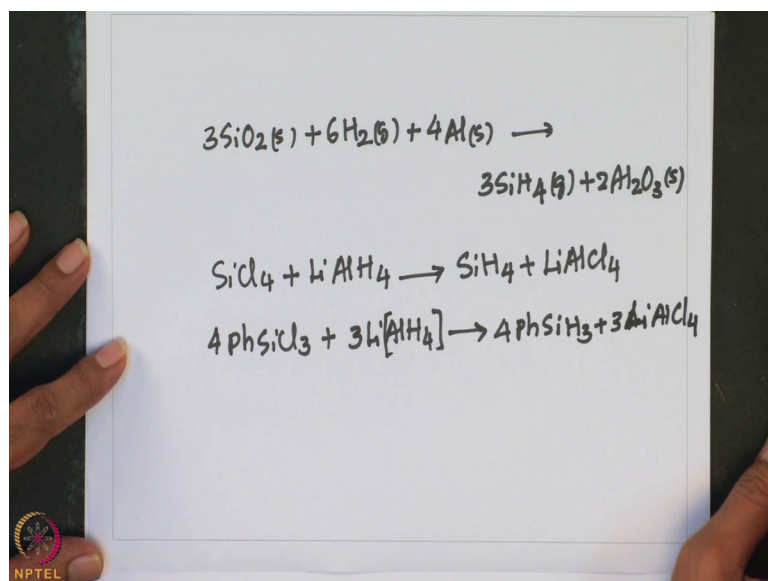 3SiO2(s) + 6H2(g) + 4Al(s) ⟶
3SiH4(g) + 2Al2O3(s)
SiCl4 + LiAlH4 ⟶ SiH4 + LiAlCl4
4PhSiCl3 + 3Li[AlH4] ⟶ 4PhSiH3 + 3LiAlCl4
NPTEL